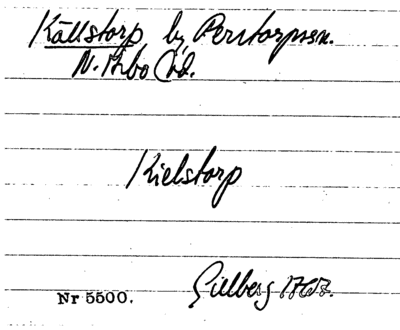 Källstorp by Perstorps sn.
N. Åsbo hd.
Kielstorp
Gillberg 1767.
Nr 5500.